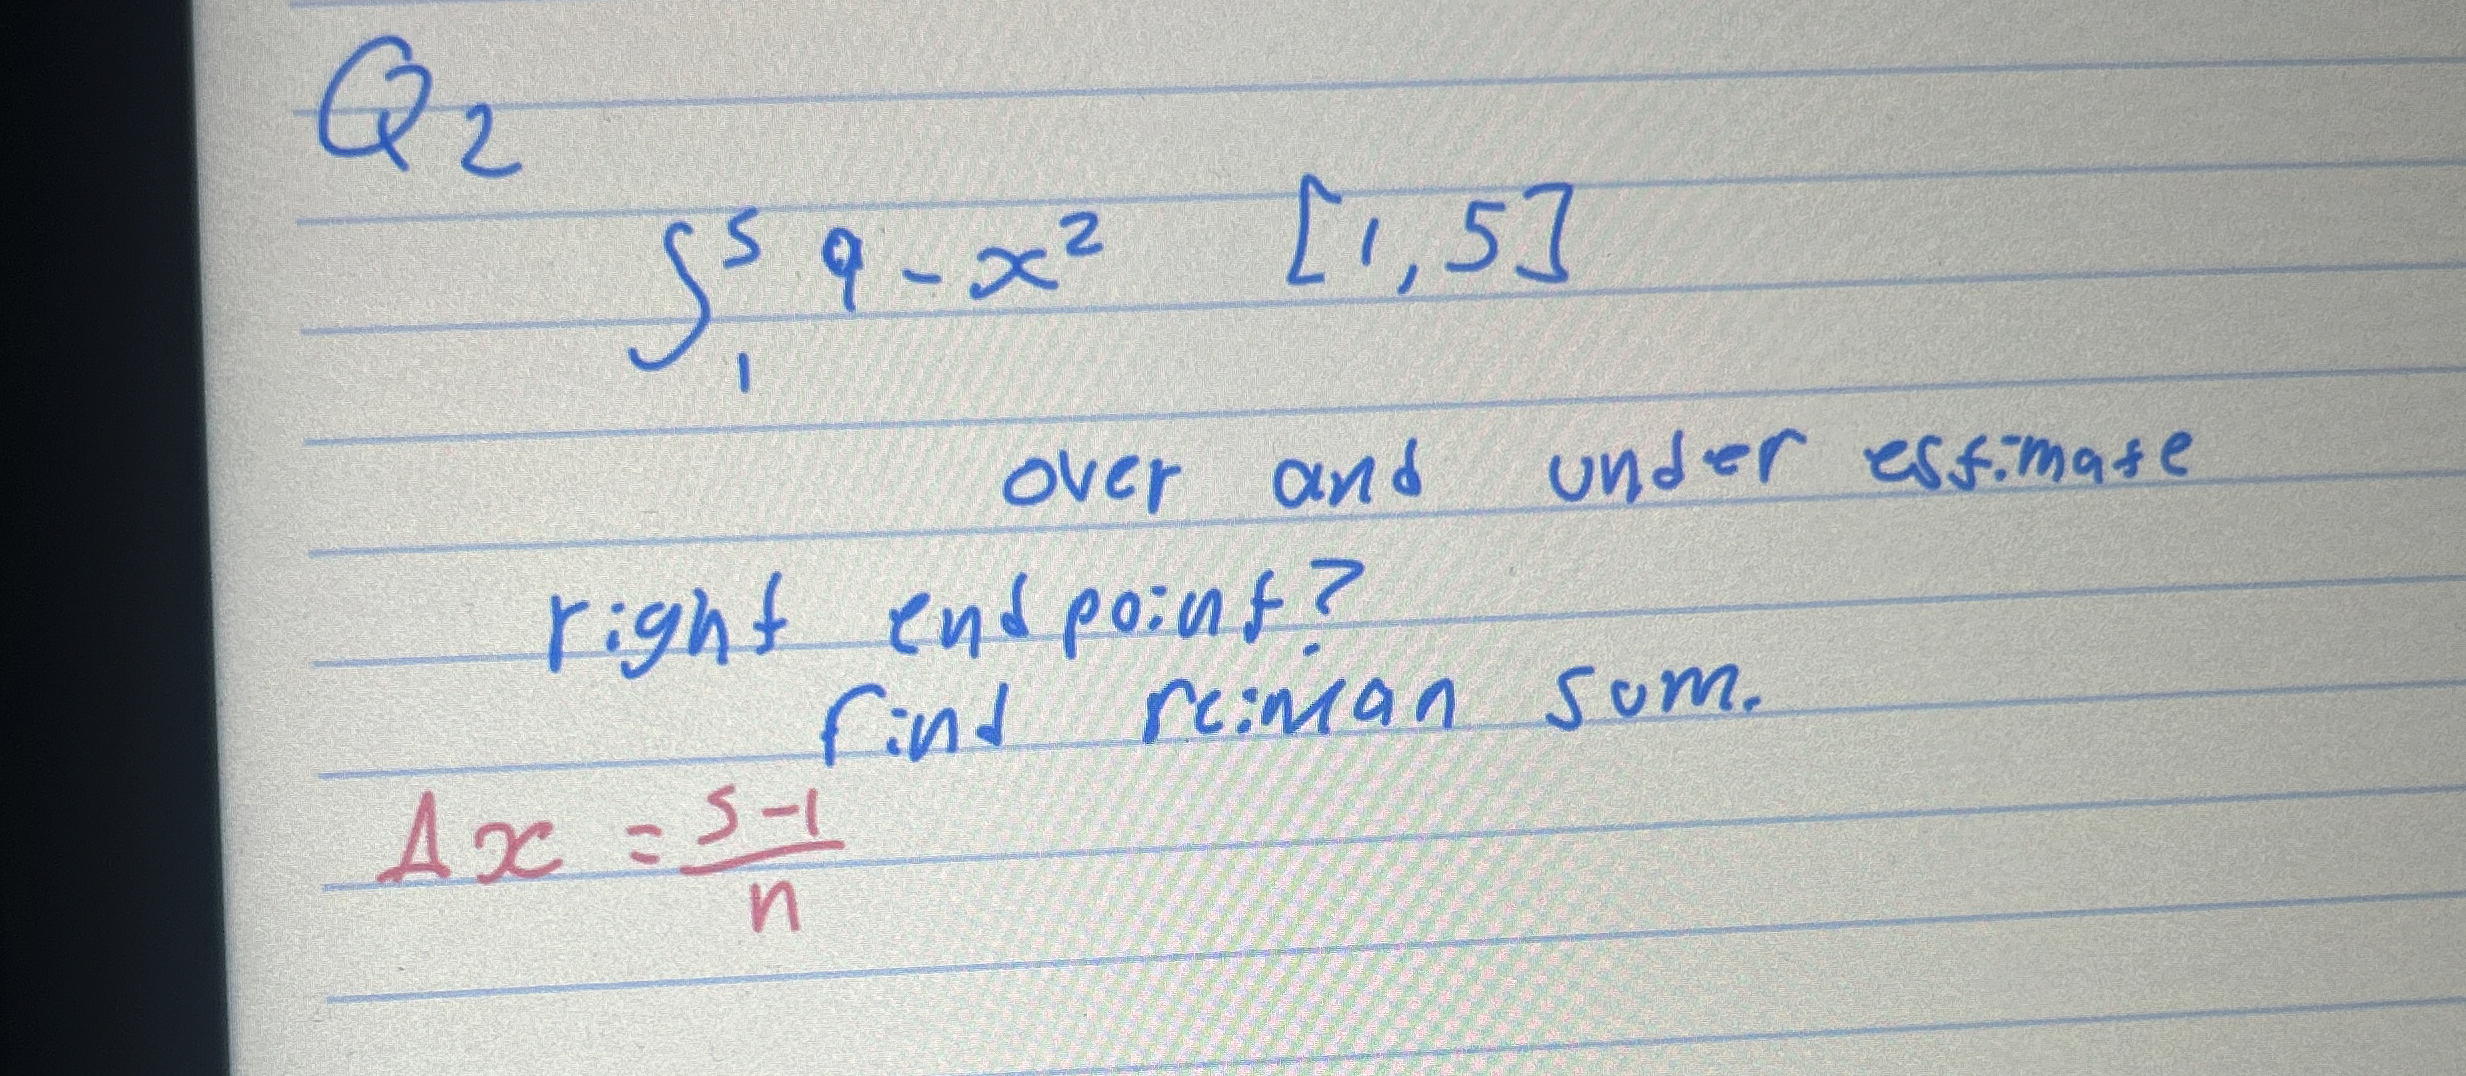 Q2
∫₁⁵ 9 - x² [1, 5]
over and under estimate
right endpoint?
find reiman sum.
Δx = (5-1)/n